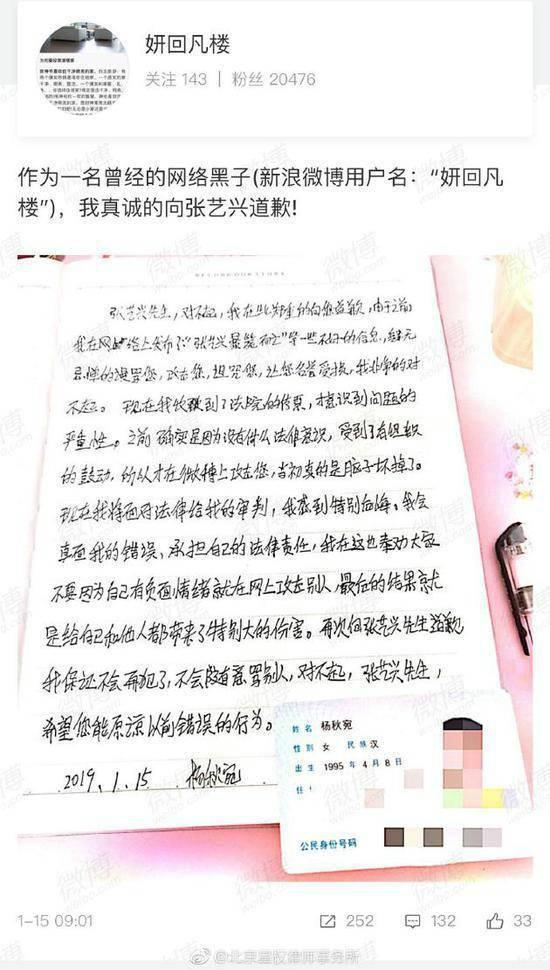 妍回凡楼
关注 143 | 粉丝 20476
作为一名曾经的网络黑子(新浪微博用户名：“妍回凡
楼”)，我真诚的向张艺兴道歉!
张艺兴先生，对不起，我在此郑重的向您道歉，由于之前
我在网络上发布了“张艺兴最装而之”等一些不好的信息，肆无
忌惮的谩骂您，攻击您，诅咒您，让您名誉受损，我非常的对
不起。现在我收到了法院的传票，才意识到问题的
严重性。之前确实是因为没有什么法律意识，受到了有组织
的鼓动，所以才在微博上攻击您，当初真的是脑子坏掉了。
现在我将面对法律给我的审判，我感到特别后悔。我会
直面我的错误、承担自己的法律责任，我在这也奉劝大家
不要因为自己有负面情绪就在网上攻击别人，最后的结果就
是给自己和他人都带来了特别大的伤害。再次向张艺兴先生道歉
我保证不会再犯了，不会随意骂别人，对不起，张艺兴先生，
希望您能原谅以前错误的行为。
2019.1.15 杨秋宛
姓名 杨秋宛
性别 女 民族 汉
出生 1995 年 4 月 8 日
住
公民身份号码
1-15 09:01
252
132
33
@北京星权律师事务所